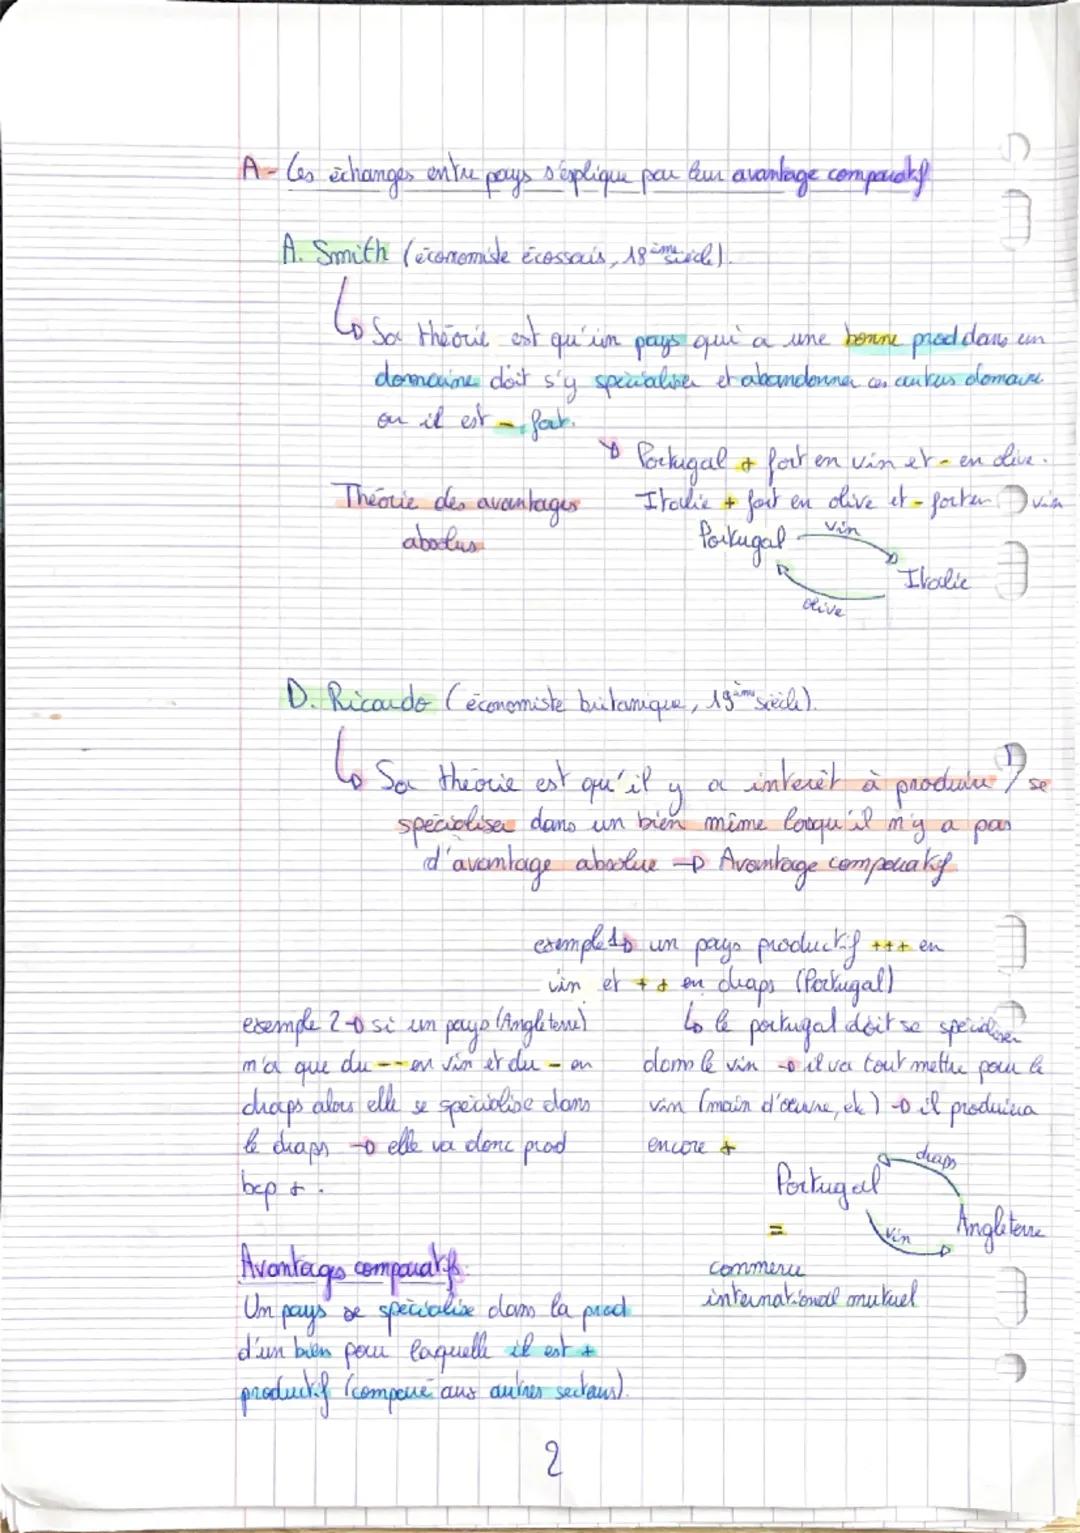 A - Les échanges entre pays s'éxplique par leur avantage comparatif
A. Smith (économiste écossais, 18ème siècle).
↳ Sa théorie est qu'un pays qui a une bonne prod dans un
domaine doit s'y spécialiser et abandonner ces autres domaine
ou il est - fort.
Portugal + fort en vin et - en olive.
Théorie des avantages
absolus
Italie + fort en olive et - fort en vin
Portugal vin
Italie
olive
D. Ricardo (économiste britanique, 19ème siècle).
↳ Sa théorie est qu'il y a interêt à produire / se
spécialiser dans un bien même lorsqu'il n'y a pas
d'avantage absolue → Avantage comparatif
exemple 1 → un pays productif +++ en
vin et ++ en draps (Portugal)
↳ le portugal doit se spécialiser
dans le vin → il va tout mettre pour le
vin (main d'œuvre, etc) → il produira
encore +
exemple 2 → si un pays (Angleterre)
n'a que du -- en vin et du - en
draps alors elle se spécialise dans
le draps → elle va donc prod
bcp +.
draps
Portugal
Angleterre
vin
=
commerce
international mutuel
Avantages comparatifs:
Un pays se spécialise dans la prod
d'un bien pour laquelle il est +
productif (comparé aux autres secteurs).
2